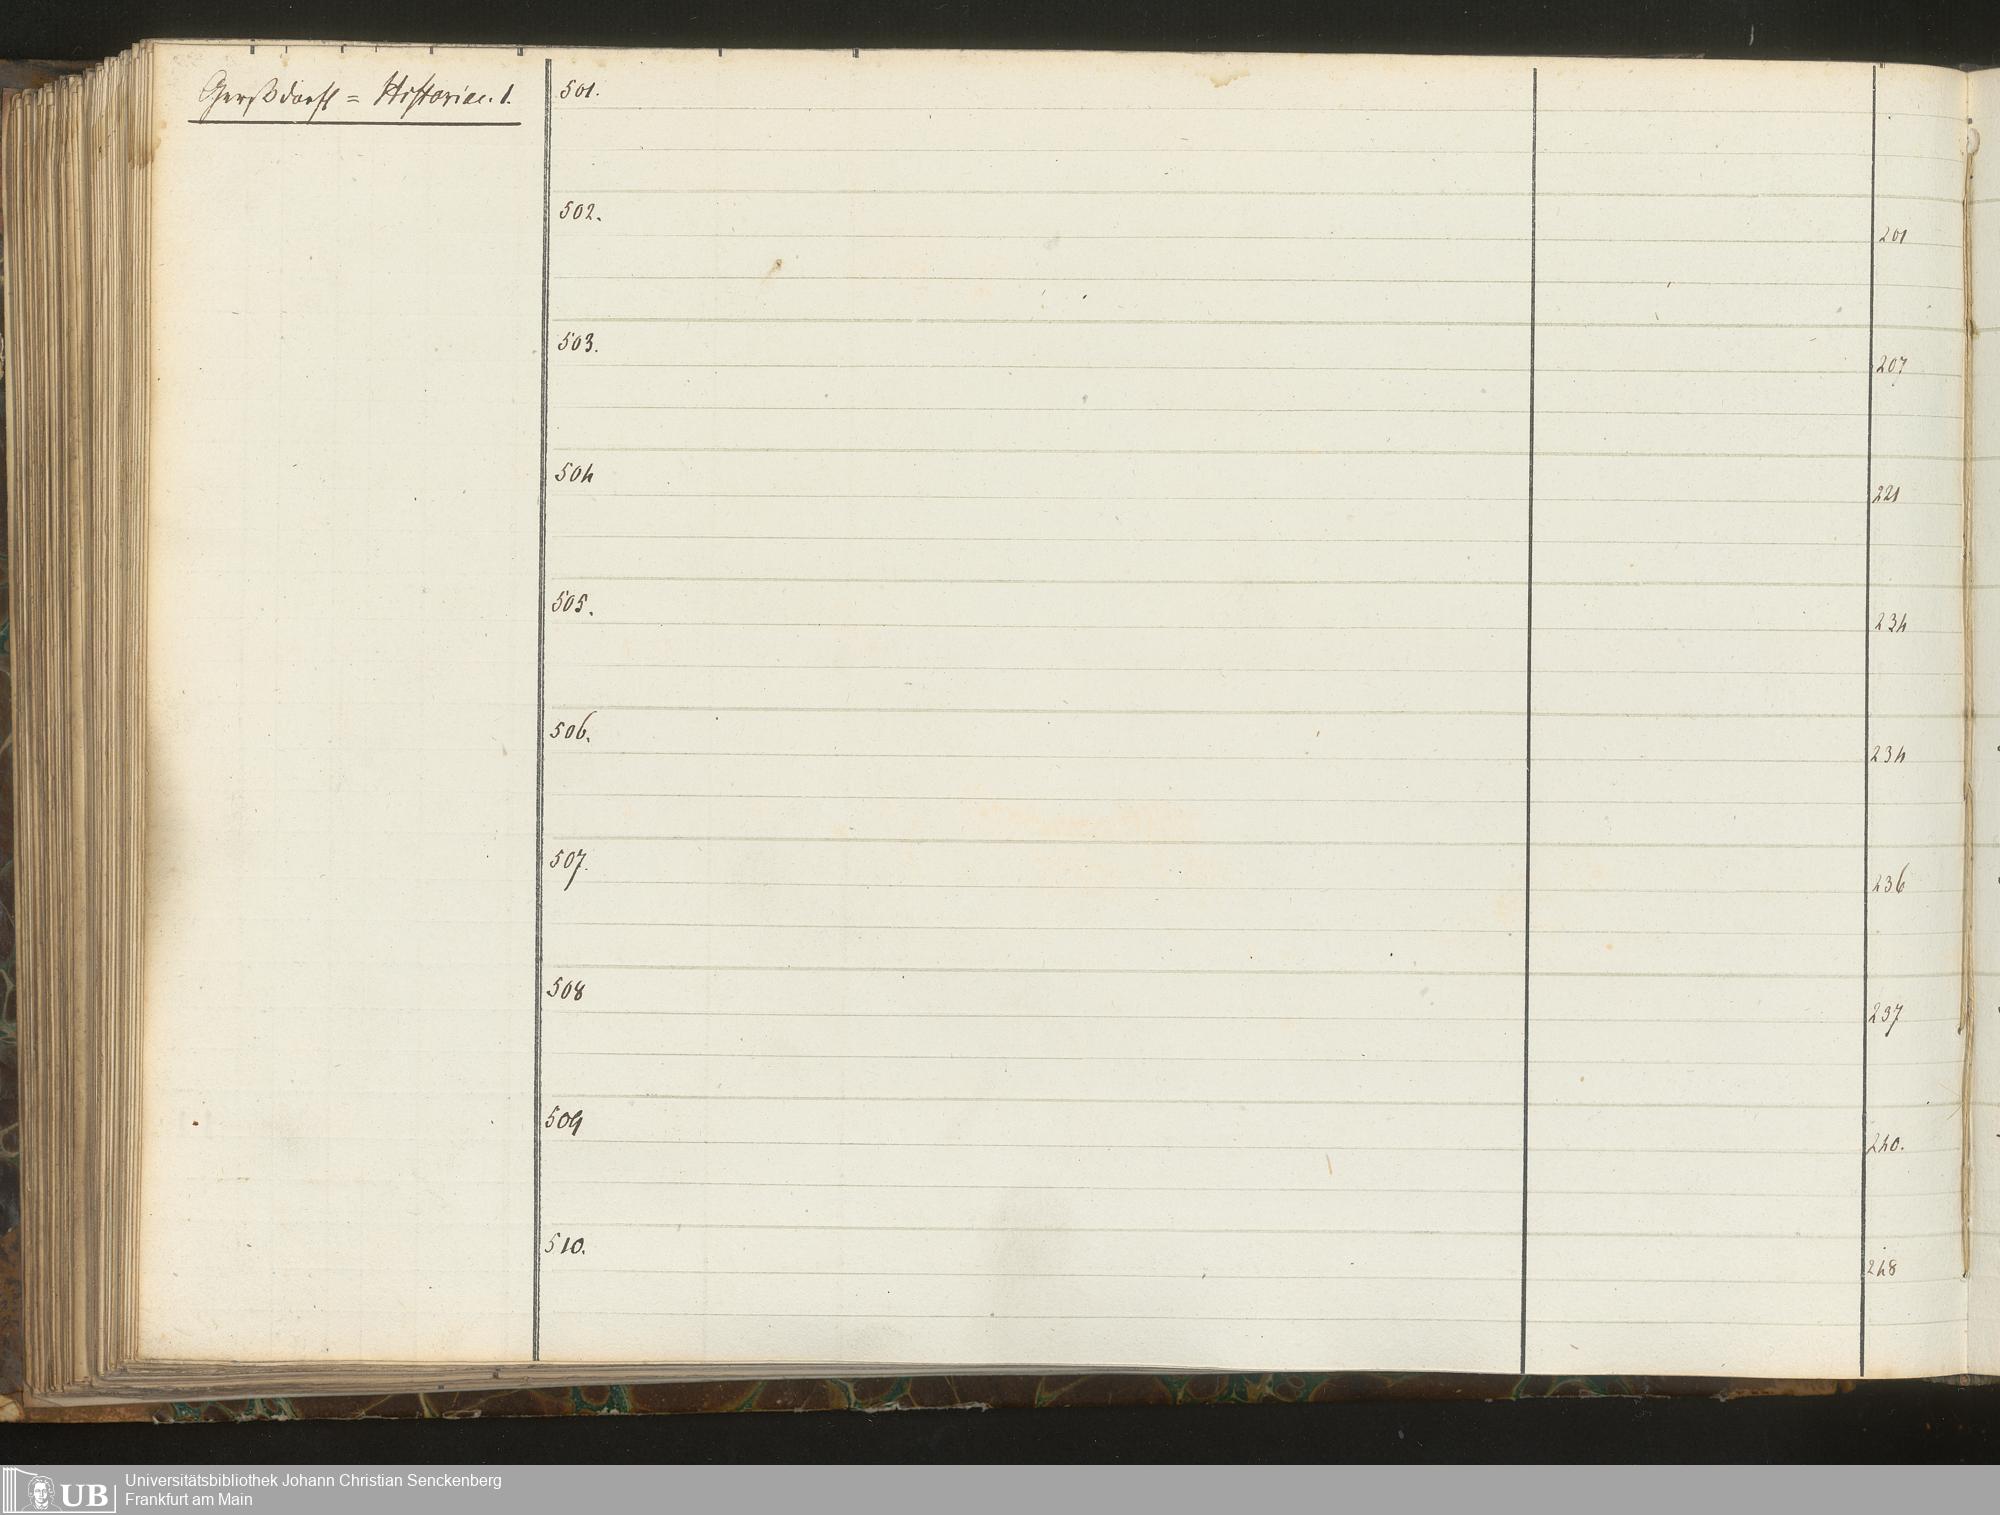 Gerßdorff = Historien. 1.
501.
502.
201
503.
207
504
221
505.
234
506.
234
507.
236
508
237
509
240.
510.
248
UB
Universitätsbibliothek Johann Christian Senckenberg
Frankfurt am Main